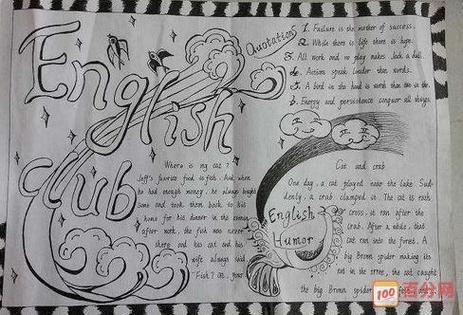 English
club
Quotations
1. Failure is the mother of success.
2. While there is life there is hope.
3. All work and no play makes Jack a dull.
4. Actions speak louder than words.
5. A bird in the hand is worth than two in the
6. Energy and persistence conquer all things.
Where is my cat?
Jeff's favorite food is fish. And when
he had enough money, he always bought
some and took them back to his
home for his dinner in the
after work, the fish was never
there and his cat and his
wife always said
Fish? Oh, your
English
Humor
Cat and crab
One day, a cat played near the lake. Sud-
denly, a crab clamped it. The cat is
cross, it ran after the
crab. After a while, that
cat ran into the forest. A
big Brown spider making its
net in the tree, the cat caught
the big Brown spider,
100 百分网